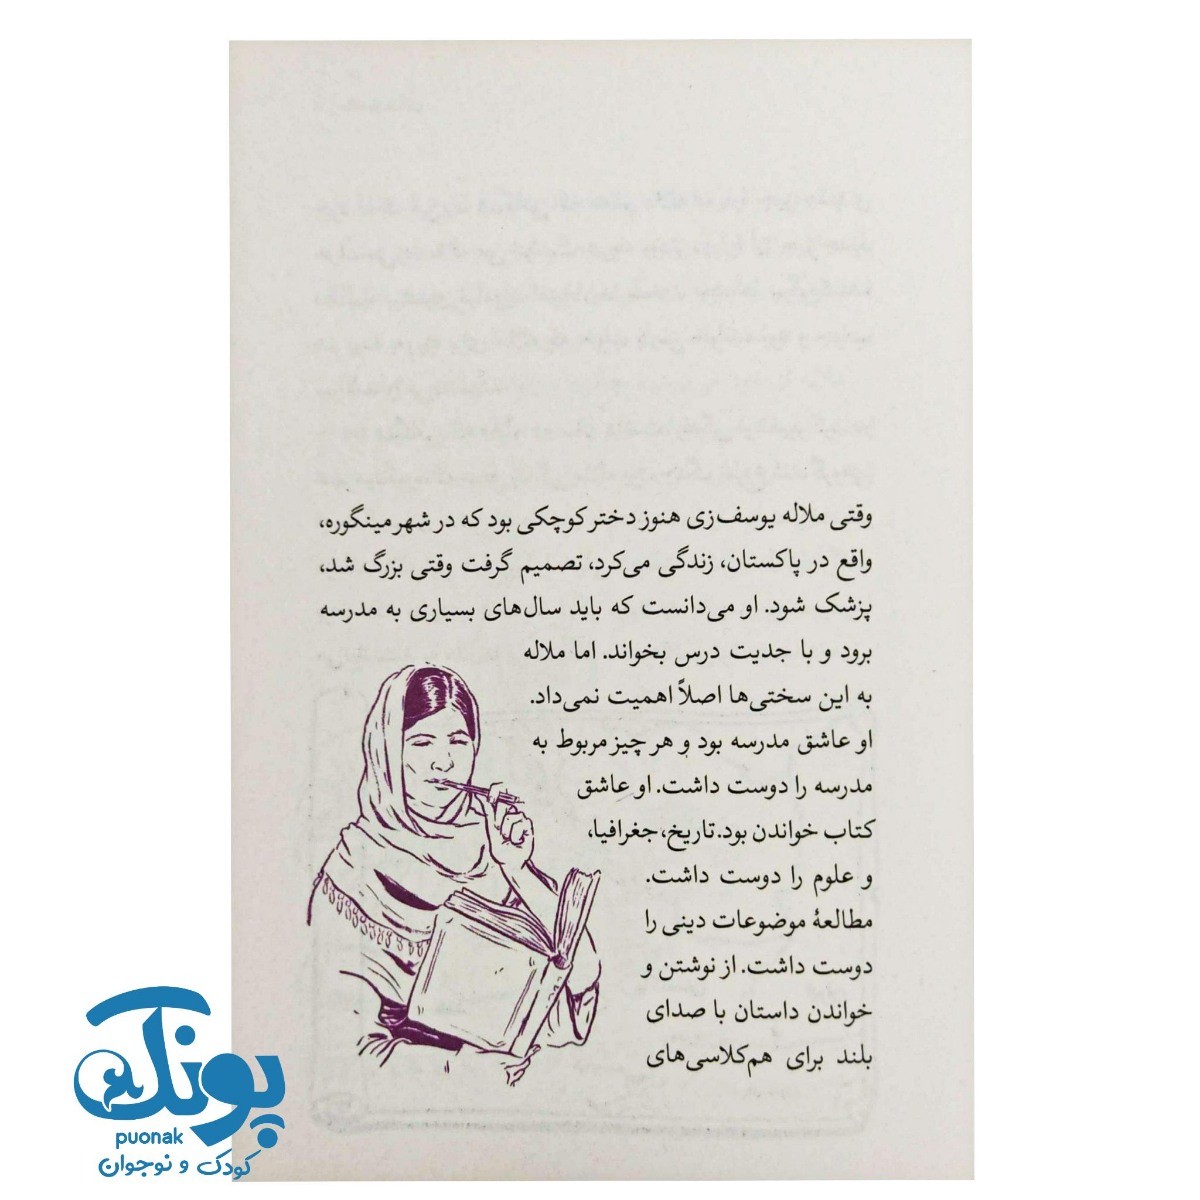 وقتی ملاله یوسف‌زی هنوز دختر کوچکی بود که در شهر مینگوره،
واقع در پاکستان، زندگی می‌کرد، تصمیم گرفت وقتی بزرگ شد،
پزشک شود. او می‌دانست که باید سال‌های بسیاری به مدرسه
برود و با جدیت درس بخواند. اما ملاله
به این سختی‌ها اصلاً اهمیت نمی‌داد.
او عاشق مدرسه بود و هر چیز مربوط به
مدرسه را دوست داشت. او عاشق
کتاب خواندن بود. تاریخ، جغرافیا،
و علوم را دوست داشت.
مطالعهٔ موضوعات دینی را
دوست داشت. از نوشتن و
خواندن داستان با صدای
بلند برای هم‌کلاسی‌های
پونک
puonak
کودک و نوجوان